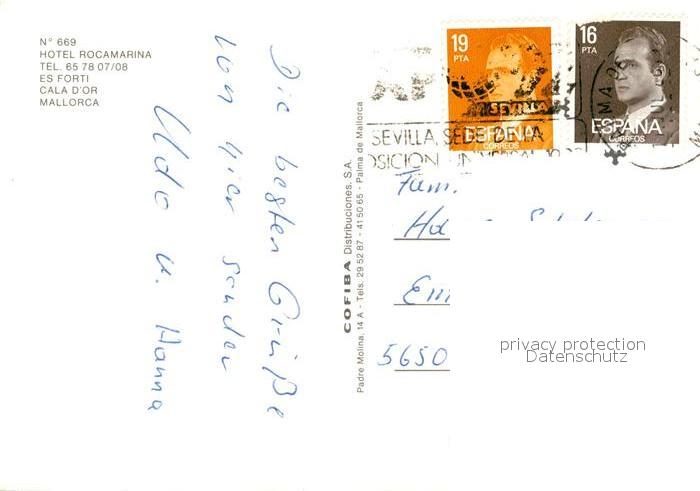 N° 669
HOTEL ROCAMARINA
TEL. 65 78 07/08
ES FORTI
CALA D'OR
MALLORCA
Die besten Grüße
von hier senden
Udo u. Hanna
COFIBA Distribuciones, S.A.
Padre Molina, 14 A - Tels. 29 52 87 - 41 50 65 - Palma de Mallorca
19
PTA
ESPAÑA
CORREOS
16
PTA
ESPAÑA
CORREOS
SEVILLA
SEVILLA, SEDE DE LA
Fam.
5650
privacy protection
Datenschutz